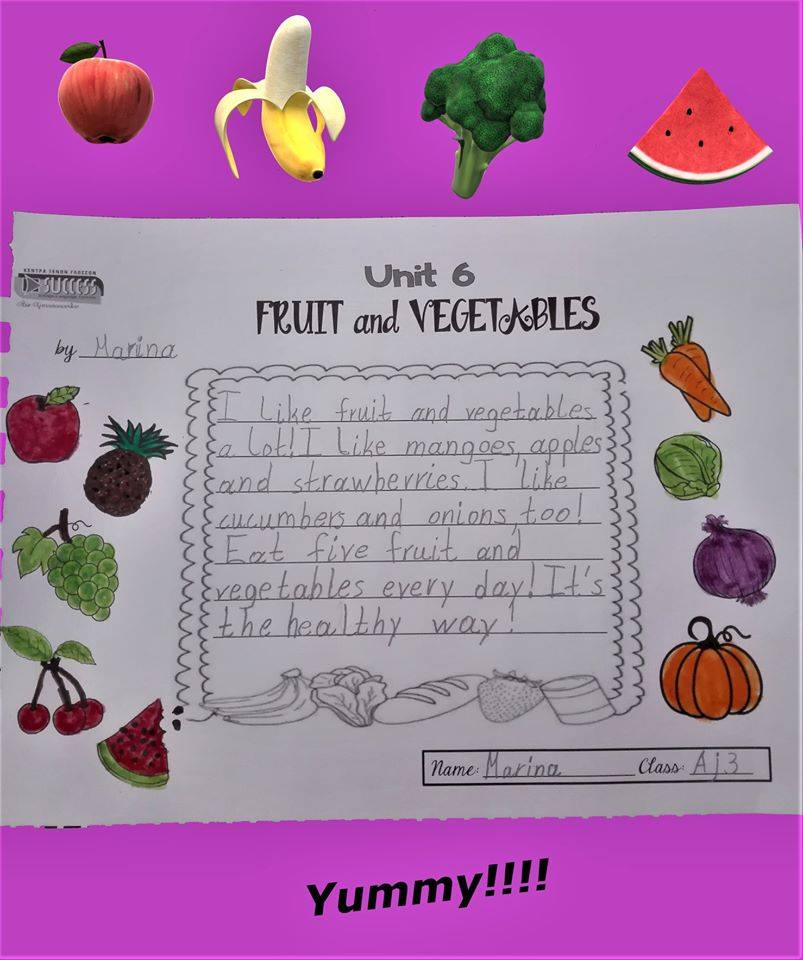 ΚΕΝΤΡΑ ΞΕΝΩΝ ΓΛΩΣΣΩΝ
SUCCESS
Unit 6
FRUIT and VEGETABLES
by Marina
I like fruit and vegetables
a lot! I like mangoes, apples
and strawberries. I like
cucumbers and onions, too!
Eat five fruit and
vegetables every day! It's
the healthy way!
Name: Marina Class: A j.3
Yummy!!!!